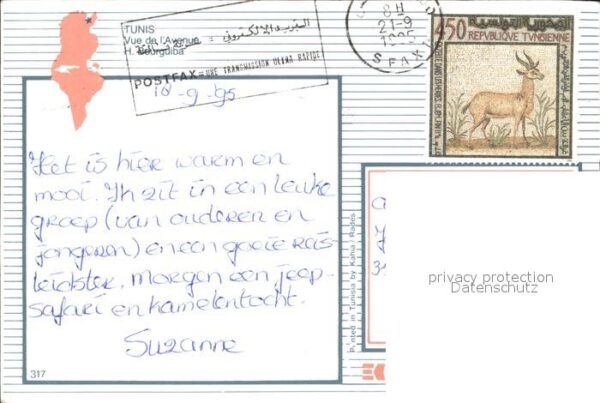 TUNIS
Vue de l'Avenue
H. Bourguiba
البريد الالكتروني =
POSTFAX = UNE TRANSMISSION ULTRA RAPIDE
8H
21-9
1995
SFAX
450
الجمهورية التونسية
REPUBLIQUE TUNISIENNE
18-9-95
Het is hier warm en
mooi. Ik zit in een leuke
groep (van ouderen en
jongeren) en een goeie reis-
leidster. Morgen een jeep-
safari en kamelentocht.
Suzanne
Printed in Tunisia by Kahia / Rades
privacy protection
Datenschutz
317